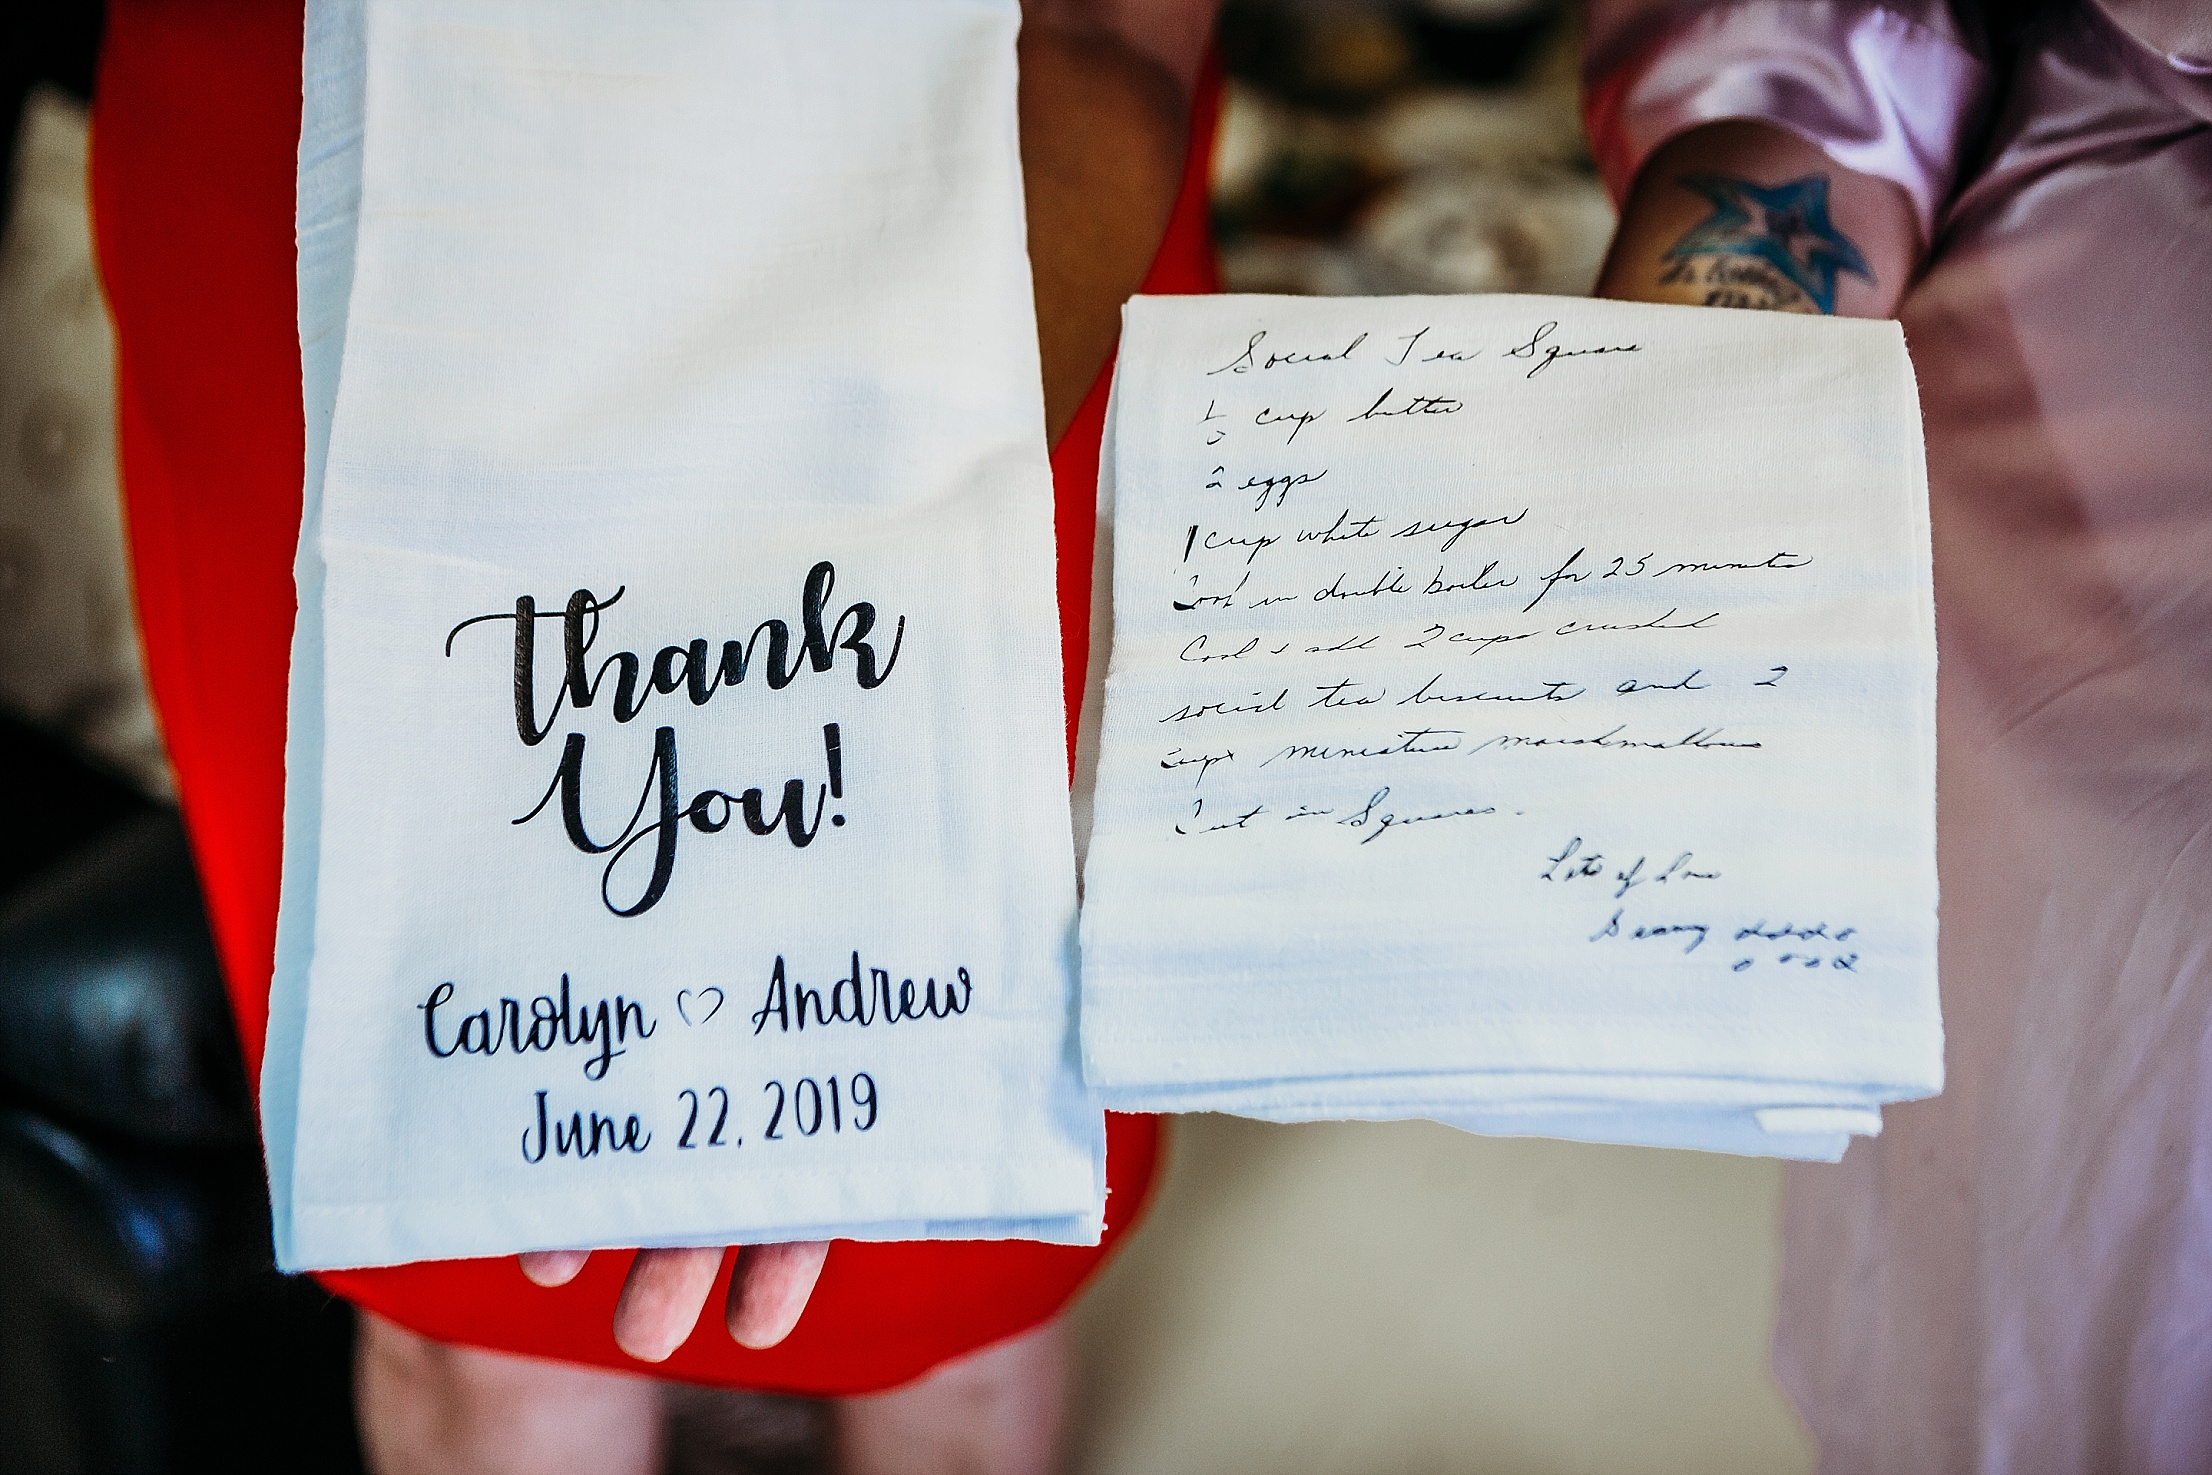 Thank
You!
Carolyn ♡ Andrew
June 22, 2019
Social Tea Square
cup butter
2 eggs
1 cup white sugar
Cook in double boiler for 25 minutes
Cool & add 2 cups crushed
social tea biscuits and 2
cups miniature marshmallows
Cut in Squares.
Lots of Love